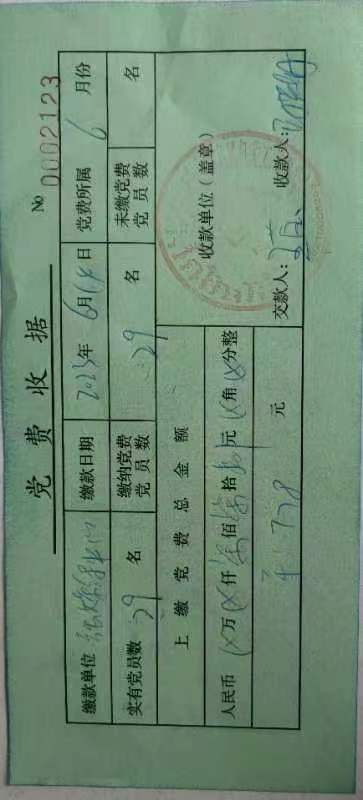 党费收据
No 0002123
缴款单位 缴款日期 2023年6月14日 党费所属 6 月份
实有党员数 29 名 缴纳党费党员数 29 名 未缴党费党员数 名
上缴党费总金额
人民币 万 仟 柒佰 柒拾 捌元 角 分整
778 元
收款单位(盖章)
交款人: 收款人: